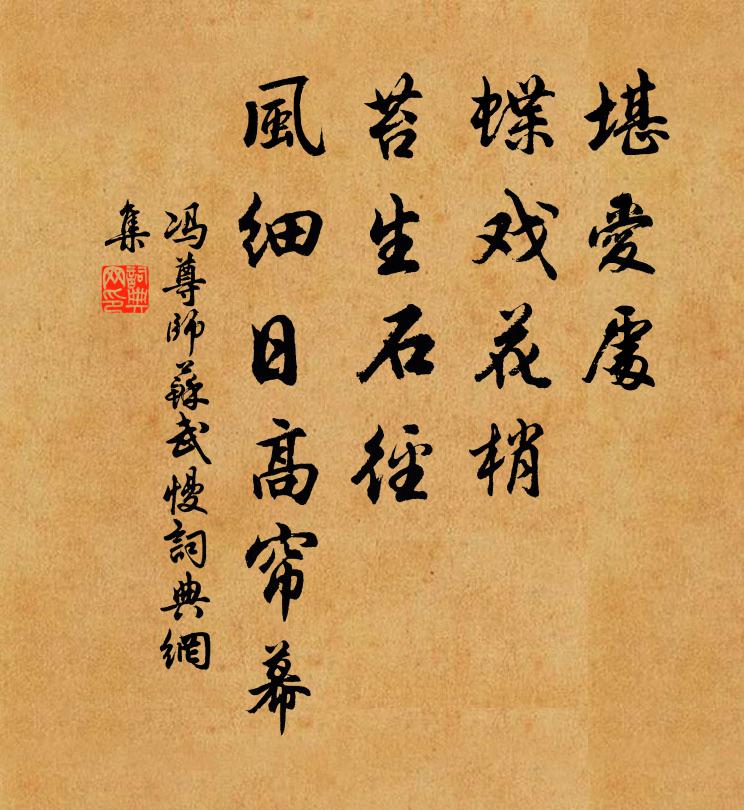 堪愛處
蝶戏花梢
苔生石徑
風細日高帘幕
冯尊師蘇武慢詞典網
集
詞典
网印